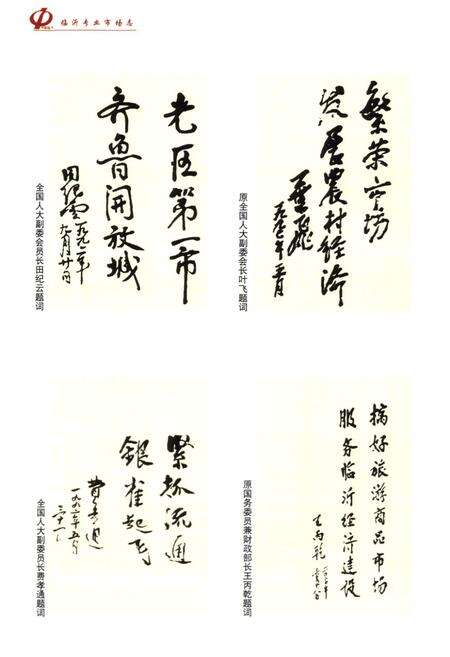 临沂专业市场志
老区第一市
齐鲁开放城
田纪云
一九九二年
九月廿日
全国人大副委会员长田纪云题词
繁荣市场
发展农村经济
叶飞
原全国人大副委会长叶飞题词
紧抓流通
银雀起飞
费孝通
全国人大副委员长费孝通题词
搞好旅游商品市场
服务临沂经济建设
王丙乾
原国务委员兼财政部长王丙乾题词